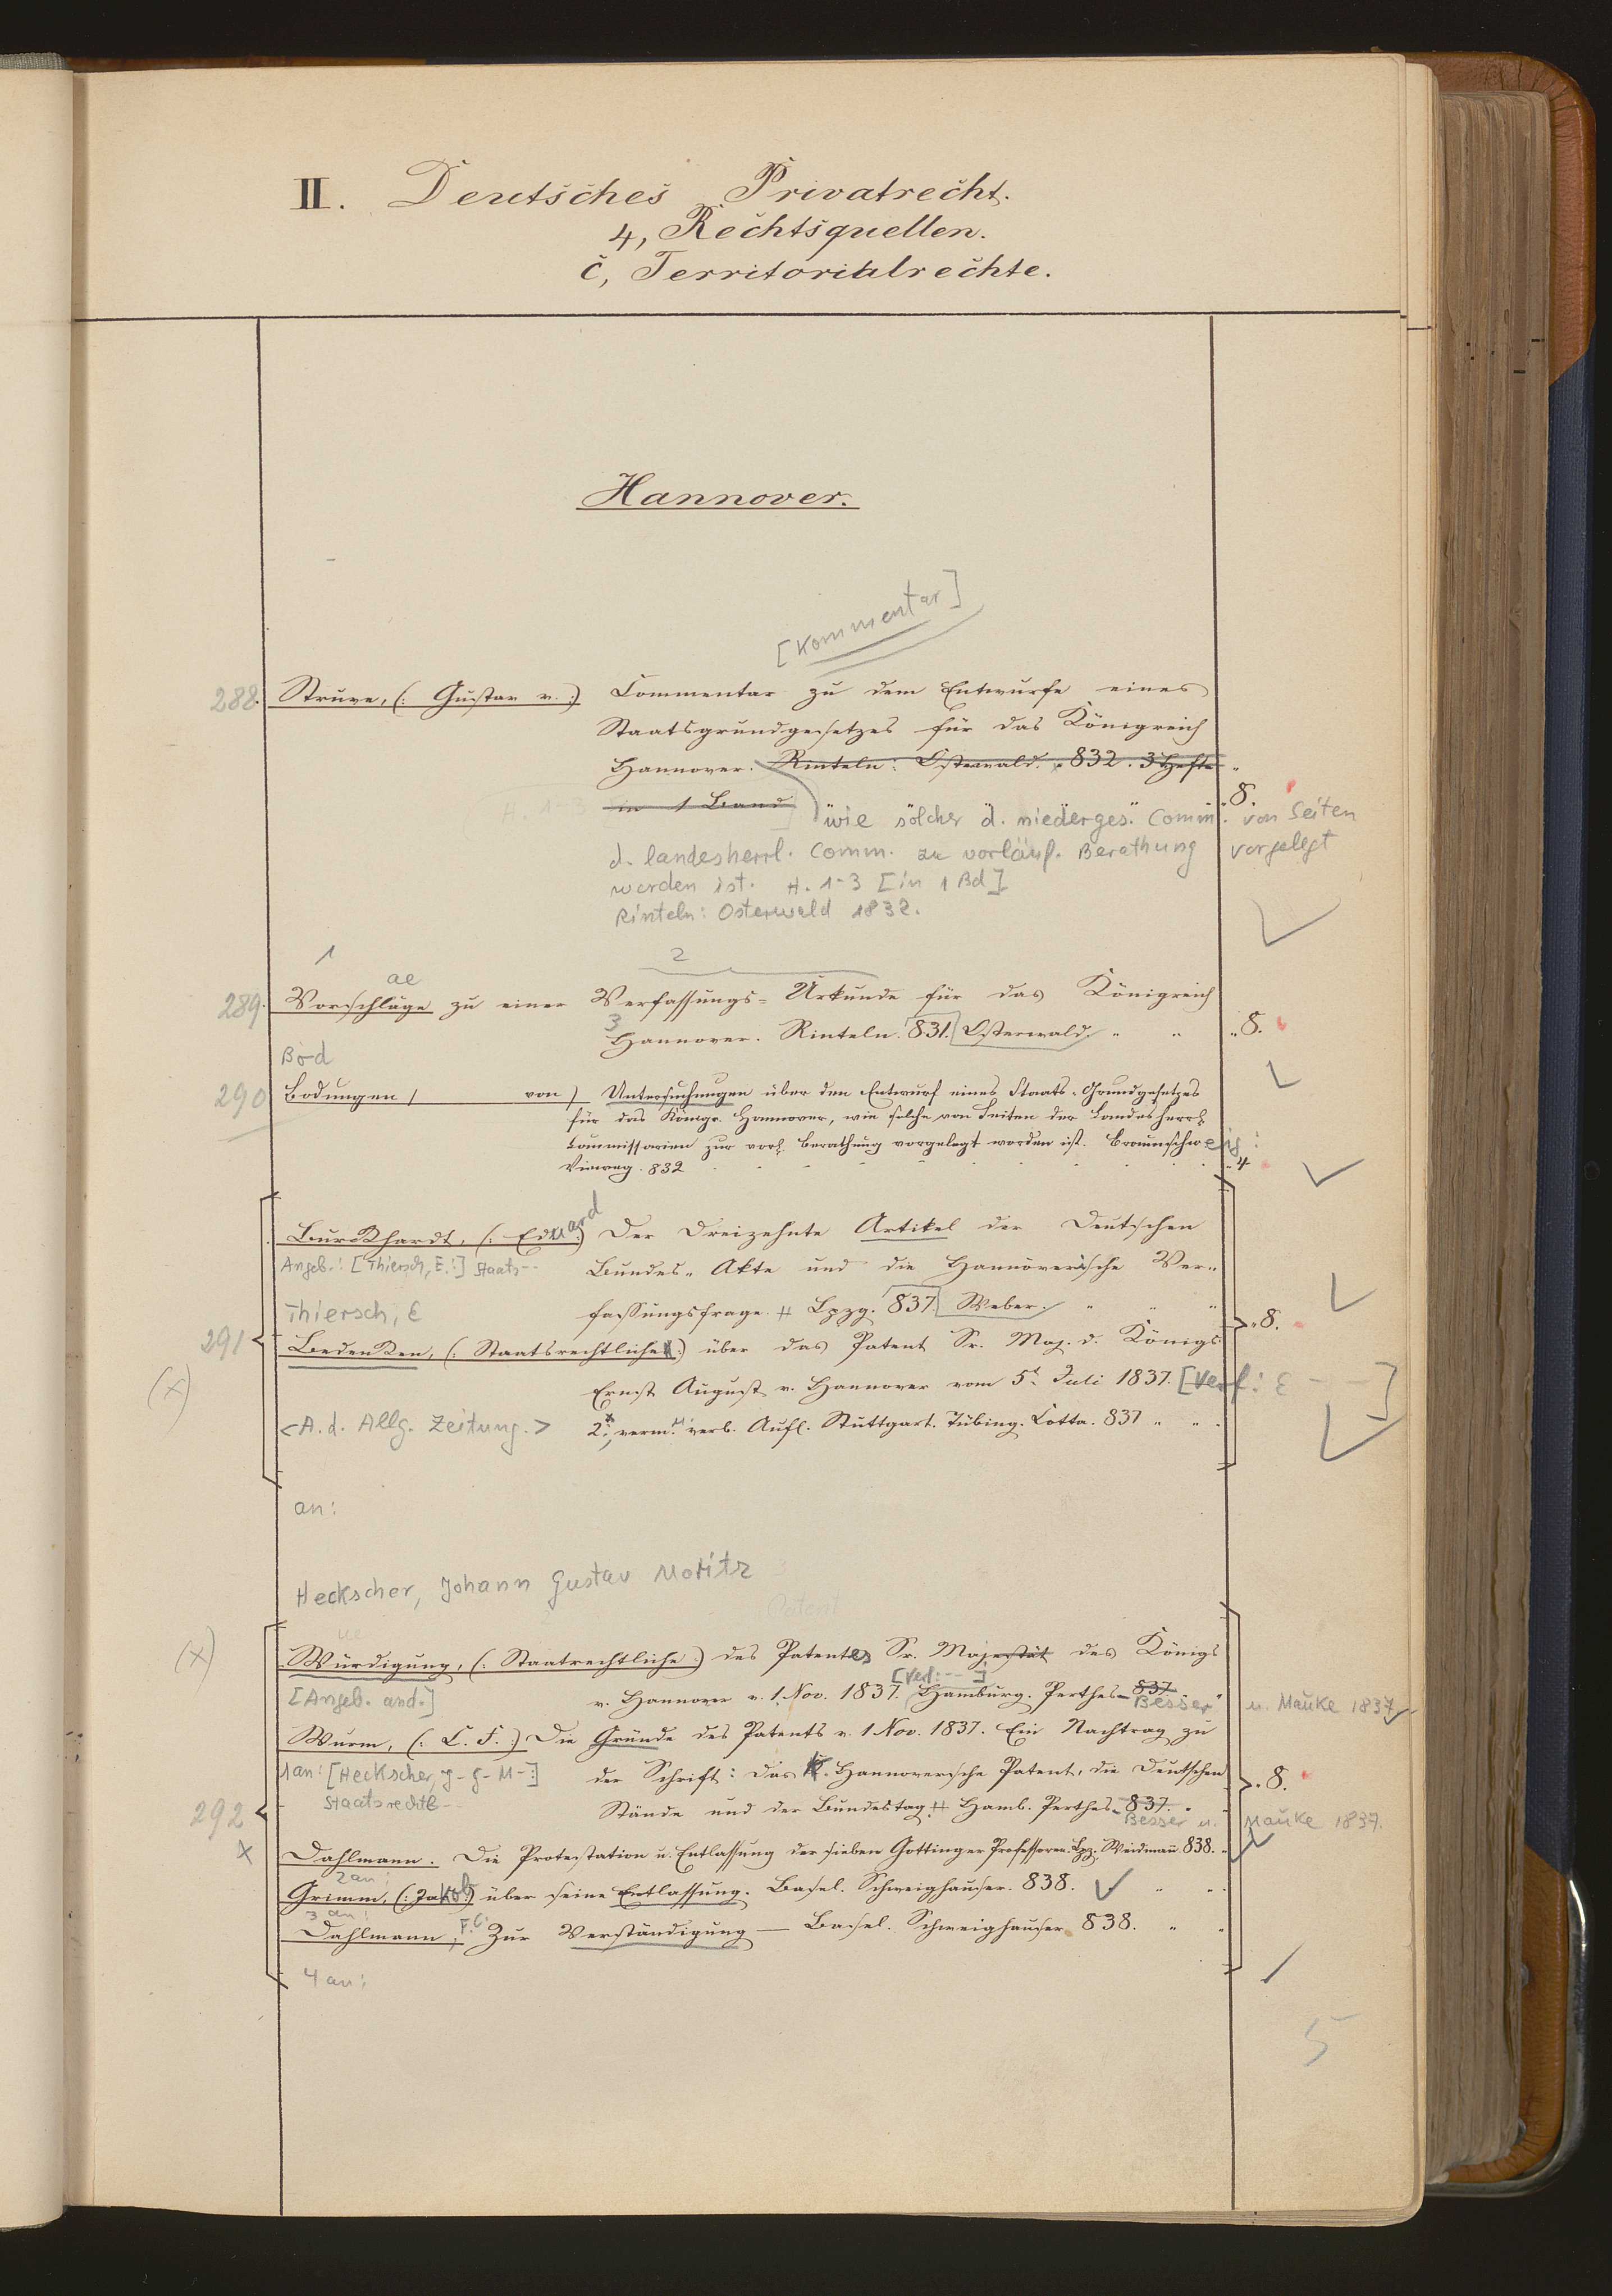 II. Deutsches Privatrecht.
4, Rechtsquellen.
c, Territorialrechte.
Hannover.
[Kommentar]
288. Struve, (: Gustav v. :) Commentar zu dem Entwurfe eines
Staatsgrundgesetzes für das Königreich
Hannover. Rinteln: Osterwald. 832. 3 Hefte
H. 1-3 in 1 Band 8.
wie solcher d. niederges. Comm. von Seiten
d. landesherrl. Comm. zu vorläuf. Berathung vorgelegt
worden ist. H. 1-3 [in 1 Bd]
Rinteln: Osterwald 1832.
1 2
ae
289. Vorschläge zu einer Verfassungs-Urkunde für das Königreich
3
Hannover. Rinteln. 831. Osterwald. " " " 8.
Bod
290 Bodungen / von ) Untersuchungen über den Entwurf eines Staats-Grundgesetzes
für das Königr. Hannover, wie solche von Seiten der Landesherrl.
Commissarien zur vorl. Berathung vorgelegt worden ist. Braunschweig:
Vieweg. 832 4
Burckhardt, (: Eduard :) Der Dreizehnte Artikel der Deutschen
Angeb.: [Thiersch, E.:] Staats--
Bundes-Akte und die Hannöverische Ver-
Thiersch, E
fassungsfrage. # Lpzg. 837. Weber. " " "
291 8.
Bedenken, (: Staatsrechtliche :) über das Patent Sr. Maj. d. Königs
(x)
Ernst August v. Hannover vom 5t. Juli 1837. [Verf: E - - ]
<A. d. Allg. Zeitung.> 2t, verm. u. verb. Aufl. Stuttgart. Tübing. Cotta. 837 " "
an:
Heckscher, Johann Gustav Moritz 3
Patent
ue
(x) Würdigung, (: Staatrechtliche :) des Patentes Sr. Majestät des Königs
[Verf: -- ]
[Angeb. and.] v. Hannover v. 1. Nov. 1837. Hamburg. Perthes- 837. Besser u. Mauke 1837
Wurm, (: C. F. :) Die Gründe des Patents v. 1 Nov. 1837. Ein Nachtrag zu
1 an: [Heckscher, J- G- M-:] der Schrift: Das K. Hannoversche Patent, die Deutschen
Staatsrechtl-- 8.
292 Stände und der Bundestag. # Hamb. Perthes- 837. Besser u. Mauke 1837.
x
Dahlmann. Die Protestation u. Entlassung der sieben Göttinger Professoren. Lpz. Weidmann 838.
2 an:
Grimm, (: Jakob :) über seine Entlassung. Basel. Schweighauser. 838. " "
3 an:
Dahlmann, F. C. Zur Verständigung — Basel. Schweighauser 838. " "
4 an:
5